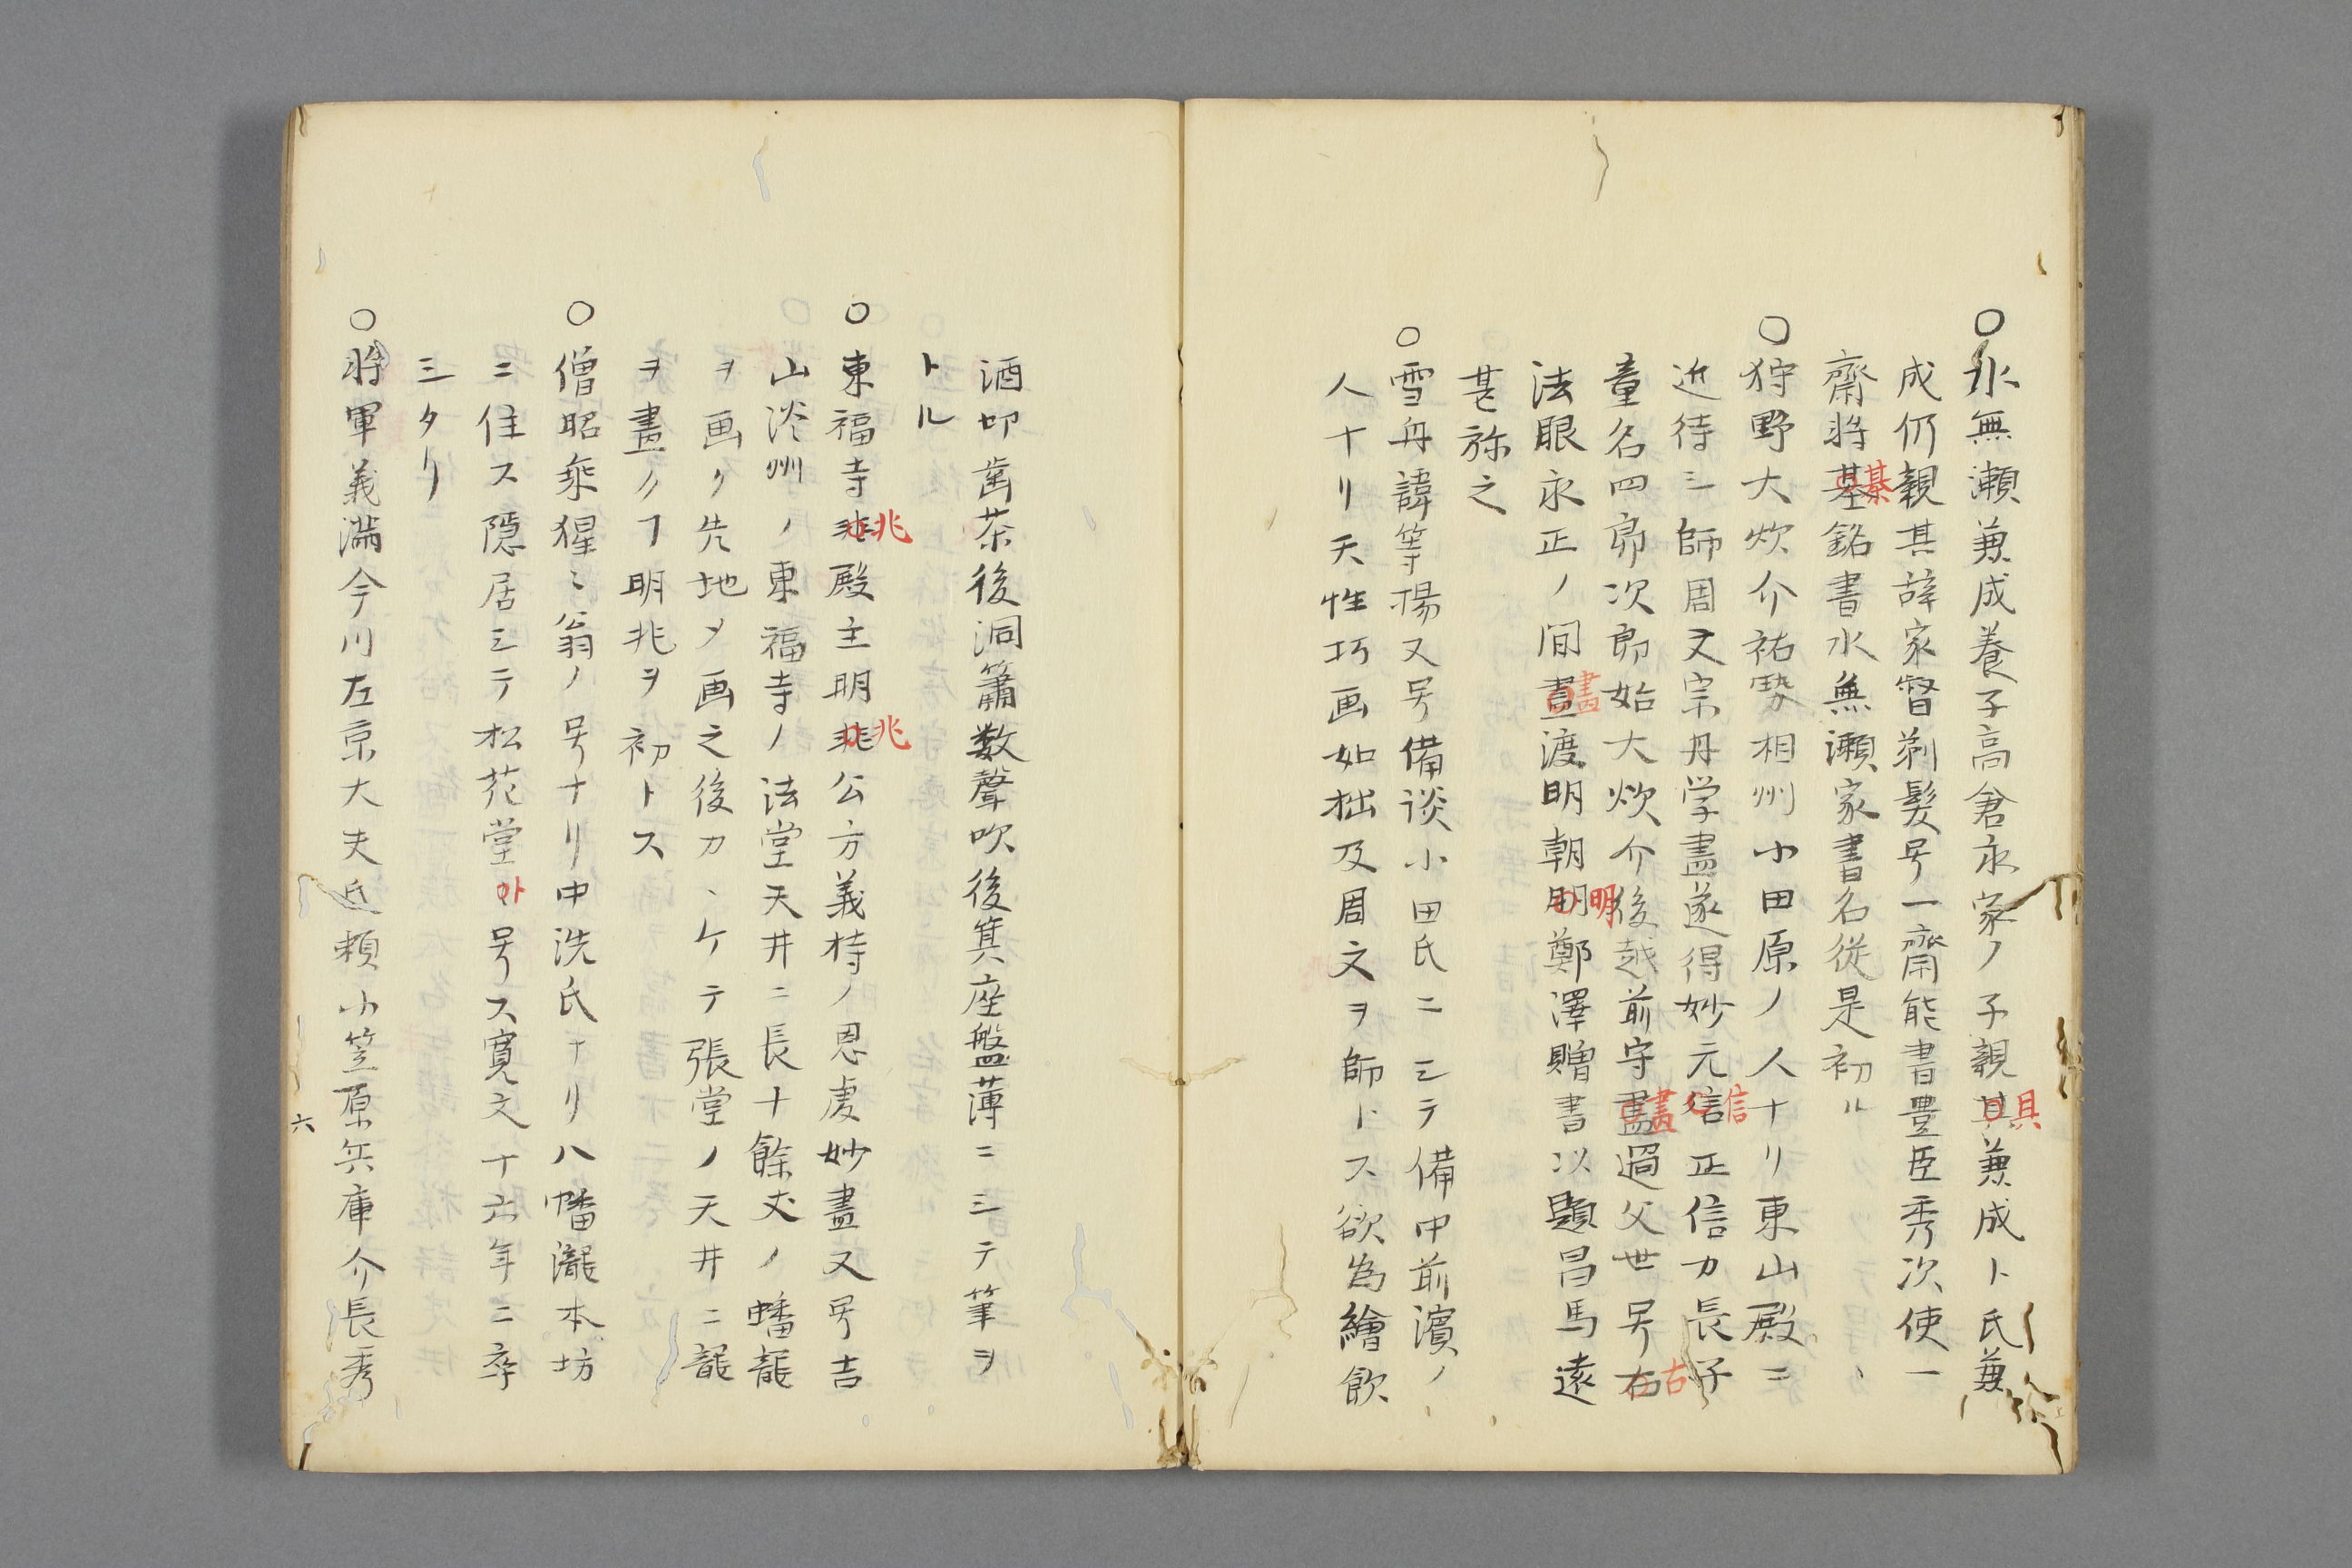 ○水無瀬兼成養子高倉永家ノ子親其具兼成ト氏兼
成仍親其辞家督剃髪号一齋能書豊臣秀次使一
齋将基棊銘書水無瀬家書名従是初ル
○狩野大炊介祐勢相州小田原ノ人ナリ東山殿ニ
近待シ師周文宗丹学畫遂得妙元信信正信カ長子
童名四郎次郎始大炊介後越前守畫畫過父世号右古
法眼永正ノ間晝畫渡明朝明明鄭澤贈書以題昌馬遠
甚称之
○雪舟諱等楊又号備談小田氏ニシテ備中前濱ノ
人ナリ天性巧画如拙及周文ヲ師トス欲為繪飲
酒叩歯茶後洞簫数聲吹後箕座盤薄ニシテ筆ヲ
トル
○東福寺兆兆殿主明兆兆公方義持ノ恩處妙畫又号吉
山淡州ノ東福寺ノ法堂天井ニ長十餘丈ノ蟠龍
ヲ画ク先地メ画之後カヽケテ張堂ノ天井ニ龍
ヲ畫クヿ明兆ヲ初トス
○僧昭乗猩〻翁ノ号ナリ中洗氏ナリ八幡瀧本坊
ニ住ス隠居シテ松花堂ト号ス寛文十六年ニ卒
三タリ
○将軍義満今川左京大夫氏頼小笠原兵庫介長秀
六